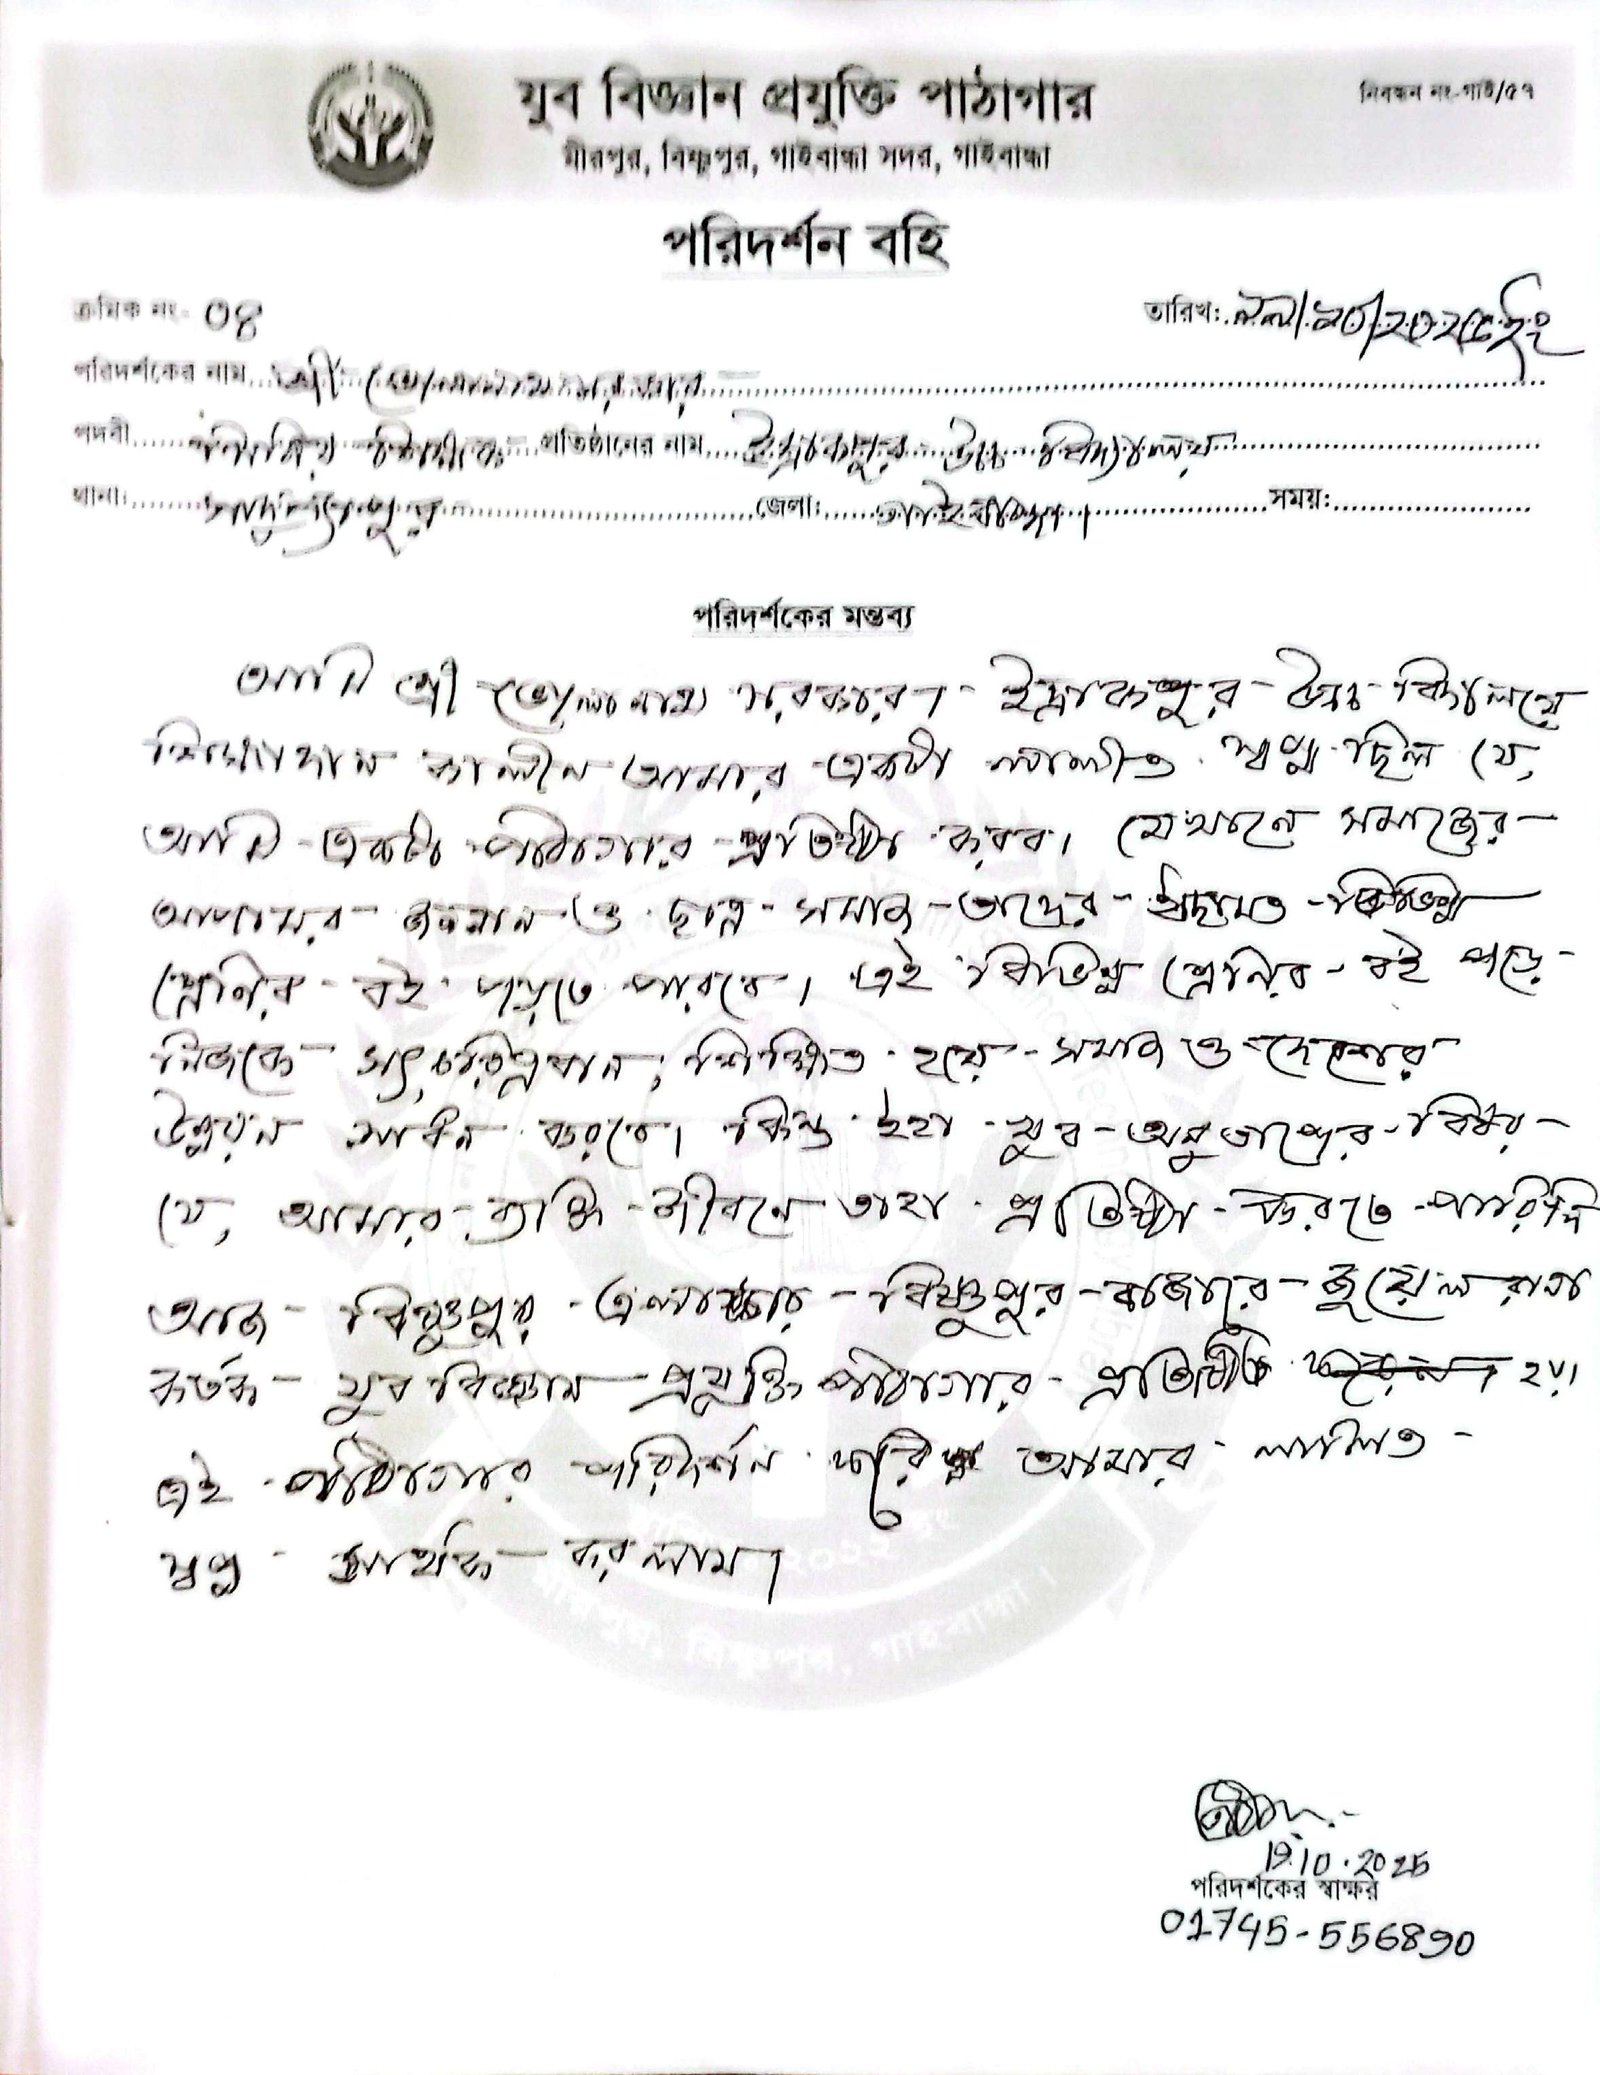 যুব বিজ্ঞান প্রযুক্তি পাঠাগার
মীরপুর, বিষ্ণুপুর, গাইবান্ধা সদর, গাইবান্ধা
নিবন্ধন নং-গাই/৫৭
পরিদর্শন বহি
ক্রমিক নং- ০৪
তারিখ: ১৯/১০/২০২৫ইং
পরিদর্শকের নাম শ্রী ভোলানাথ সরকার
পদবী সিনিয়র শিক্ষক প্রতিষ্ঠানের নাম ইদ্রাকপুর উচ্চ বিদ্যালয়
থানা: সাদুল্যাপুর জেলা: গাইবান্ধা। সময়:
পরিদর্শকের মন্তব্য
আমি শ্রী ভোলানাথ সরকার। ইদ্রাকপুর উচ্চ বিদ্যালয়ে
শিক্ষাদান কালীন আমার একটা লালীত স্বপ্ন ছিল যে,
আমি একটা পাঠাগার প্রতিষ্ঠা করব। যেখানে সমাজের
আপামর জনগন ও ছাত্র সমাজ তাদের বিভিন্ন
শ্রেনির বই পড়তে পারবে। এই বিভিন্ন শ্রেনির বই পড়ে
নিজকে সৎ, চরিত্রবান, শিক্ষিত হয়ে সমাজ ও দেশের
উন্নয়ন সাধন করবে। কিন্তু ইহা খুব অনুতাপের বিষয়
যে, আমার ব্যক্তি জীবনে তাহা প্রতিষ্ঠা করতে পারিনি
আজ বিষ্ণুপুর এলাকার বিষ্ণুপুর বাজারে জুয়েল রানা
কর্তক যুব বিজ্ঞান প্রযুক্তি পাঠাগার প্রতিষ্ঠিত হয়।
এই পাঠাগার পরিদর্শন করে আমার লালিত
স্বপ্ন সার্থক করলাম।
19.10.2025
পরিদর্শকের স্বাক্ষর
01745-556890